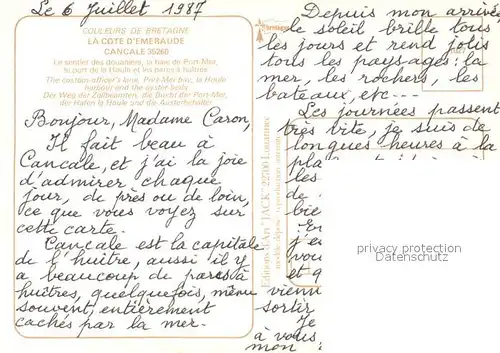 Le 6 Juillet 1987
COULEURS DE BRETAGNE
LA COTE D'EMERAUDE
CANCALE 35260
Le sentier des douaniers, la baie de Port-Mer,
le port de la Houle et les parcs à huîtres
The custom officer's lane, Port-Mer bay, la Houle
harbour and the oyster-beds
Der Weg der Zollbeamten, die Bucht der Port-Mer,
der Hafen la Houle und die Austerbehälter
Bonjour, Madame Caron,
Il fait beau à
Cancale, et j'ai la joie
d'admirer chaque
jour, de près ou de loin,
ce que vous voyez sur
cette carte.
Cancale est la capitale
de l'huître, aussi il y
a beaucoup de parcs à
huîtres, quelquefois, même
souvent, entièrement
cachés par la mer.
Editions d'Art "JACK" 22700 LOUANNEC
Depuis mon arrivée
le soleil brille tous
les jours et rend jolis
tous les paysages : la
mer, les rochers, les
bateaux, etc...
Les journées passent
très vite, je suis de
longues heures à la
pla
les
de
bie
En
j'e
vou
et q
vienn
sortir
Je
à vous
mon
privacy protection
Datenschutz